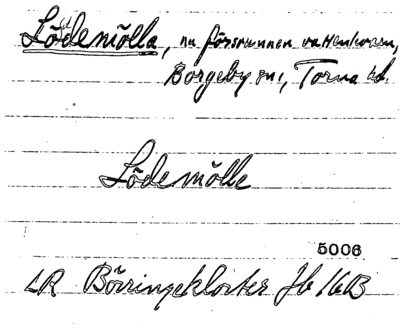 Lödemölla, nu försvunnen vattenkvarn,
Borgeby sn, Torna hd.
Lödemölle
5006
LR Börringekloster Jb 16B